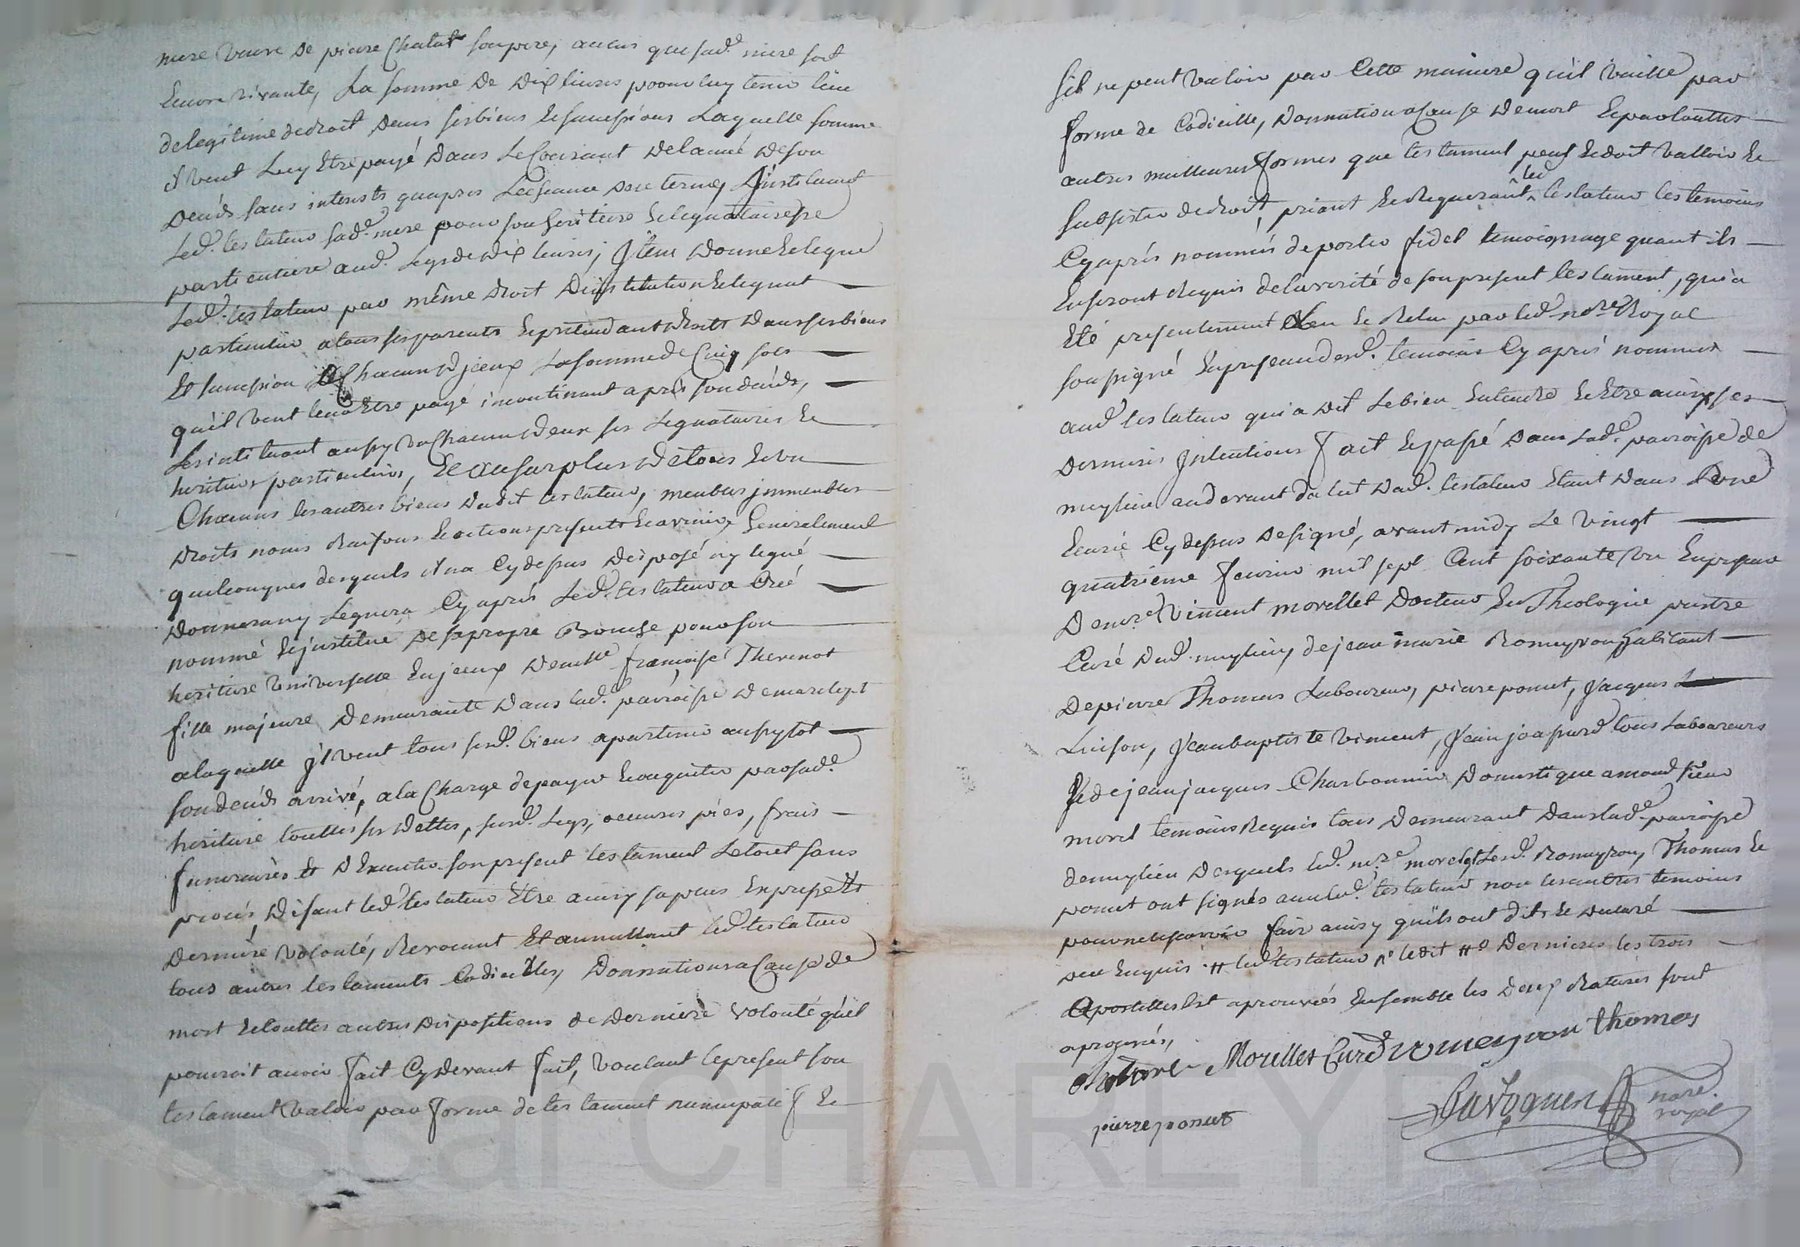 mere veuve de pierre Chatat son pere, au cas que sad.e mere soit
Encore vivante, La somme de dix livres pour luy tenir lieu
de legitime de droit dans ses biens et successions Laquelle somme
il veut Luy Etre payé dans Le Courant de lannée de son
decés sans interests quapres Lecheance dud terme, Instituant
Led.t testateur sad.e mere pour son heritiere et legataire
particuliere aud.t Legs de dix livres; Item donne et legue
Led.t testateur par même droit dinstitution et legat
particulier a tous ses parents et pretendants droits dans ses biens
Et succession a Chacun d'jceux La somme de Cinq sols
qu'il veut leur Etre payé incontinant aprés son decés,
Les instituant aussy un Chacun deux ses Legataires et
heritiers particuliers, Et au surplus de tous et un
Chacuns les autres biens dudit testateur, meubles jmmeubles
droits noms Raisons et actions presents et avenir, Generalement
quelconques desquels il na Cy dessus disposé ny legué
donnera ny Leguera Cy aprés Led.t testateur a Créé
nommé Et jnstitué de sa propre Bouche pour son
heritiere universelle En jceux demlle francoise Thevenot
fille majeure demeurante dans lad.e parroisse de
a laquelle jl veut tous sesd.ts biens apartenir aussytot
son decés arrivé, a la Charge de payer et acquiter par sad.e
heritiere touttes ses dettes, susd.ts Legs, oeuvres pies, frais
funeraires et dExecuter son present testament Le tout sans
procés, disant led.t testateur Etre ainsy sa pure Expresse et
derniere volonté, Revocant Et annullant led.t testateur
tous autres testaments Codicilles, donnations a Cause de
mort et touttes autres dispositions de derniere volonté qu'il
pouroit avoir fait Cy devant fait, voulant le present son
testament valoir par forme de testament nuncupatif Et
S'il ne peut valoir par Cette maniere qu'il vaille par
forme de Codicille, donnation a Cause de mort Et par touttes
autres meilleures formes que testament peut et doit valloir Et
subsister de droit, priant Et Requerant led.t testateur les temoins
Cy aprés nommés de porter fidel temoignage quant ils
En seront Requis de la verité de son present testament, qui a
Eté presentement Leu et Releu par led.t no.re Royal
soussigné En presence desd.ts temoins Cy aprés nommés
aud.t testateur qui a dit Le bien Entendre Et Etre ainsy ses
dernieres jntentions fait et passé dans lad.e parroisse de
au devant du lit dud.t testateur Etant dans
Cy dessus designé, avant midy Le vingt
quatrieme fevrier mil sept Cent soixante un En presence
de m.re vincent morillet docteur En Theologie prestre
Curé dud.t de jean marie Romeyron habitant
de pierre Thomas Laboureur, pierre poncet, Jacques
Jean baptiste vincent, Jean tous Laboureurs
Et de jean jacques Charbonnier domestique
temoins Requis tous demeurant dans lad.e parroisse
desquels led.t m.re morillet Lesd.ts Romeyron, Thomas et
poncet ont signés avec led.t testateur non les autres temoins
pour ne scavoir faire ainsy qu'ils ont dits et declaré
de ce Enquis # led.t testateur # Dernieres les trois
Apostilles sont aprouvées Ensemble les deux Ratures sont
aprouvés,
Chatat Morillet Curé romeyron thomas
pierre ponset
nore. royal